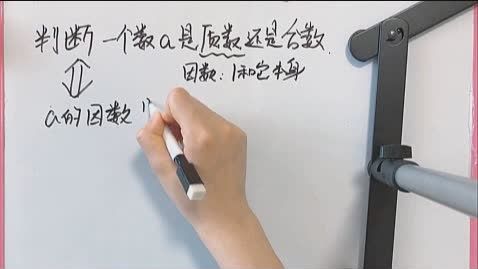 判断一个数a是质数还是合数.
因数:1和它本身
a的因数